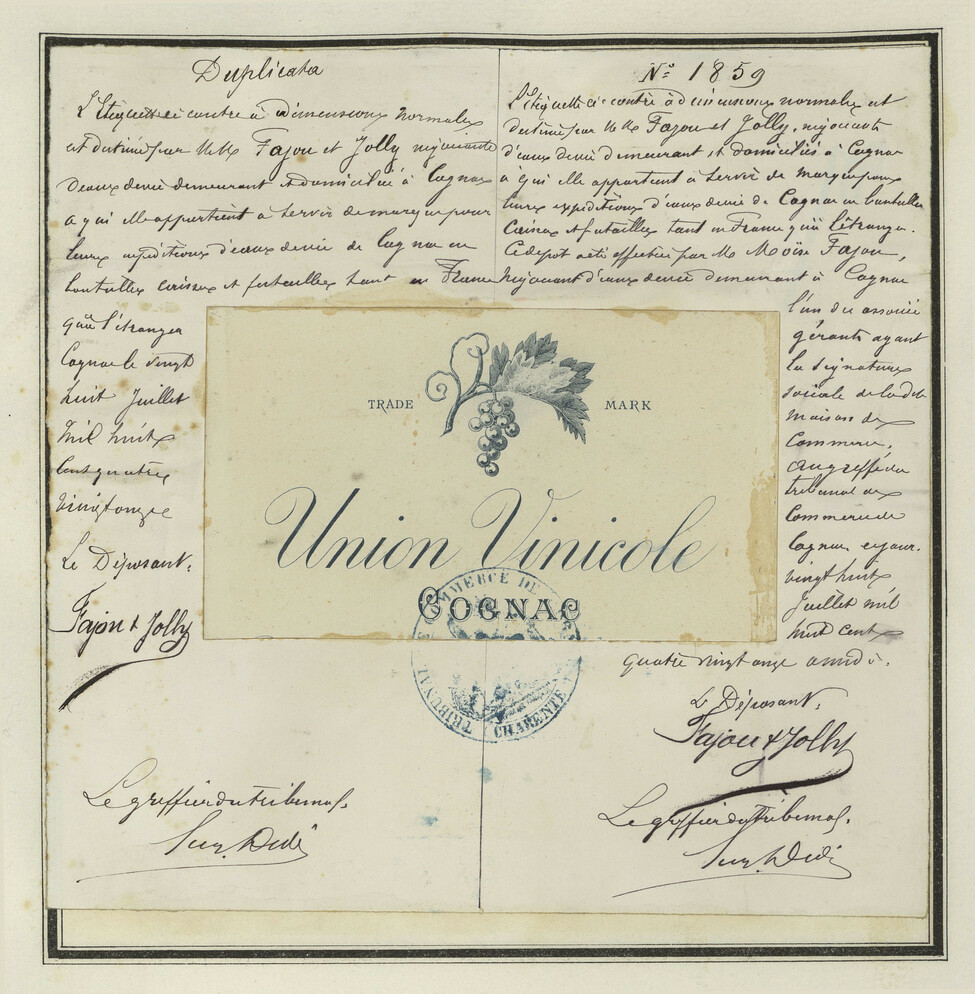 Duplicata
L'étiquette ci contre à dimensions normales
est destinée par MM Fajou et Jolly négociants
d'eaux de vie demeurant et domiciliés à Cognac
a qui elle appartient à servir de marque pour
leurs expéditions d'eaux de vie de Cognac en
bouteilles caisses et futailles tant en France
qu'à l'étranger
Cognac le vingt
huit Juillet
mil huit
cent quatre
vingt onze
Le Déposant,
Fajou & Jolly
Le greffier du Tribunal.
N° 1859
L'étiquette ci-contre à dimensions normales est
destinée par MM Fajou et Jolly, négociants
d'eaux de vie demeurant et domiciliés à Cognac
à qui elle appartient à servir de marque pour
leurs expéditions d'eaux de vie de Cognac en bouteilles
Caisses et futailles tant en France qu'à l'étranger.
Ce dépôt a été effectué par M. Moïse Fajou,
négociant d'eaux de vie demeurant à Cognac
l'un des associés
gérants ayant
la signature
sociale de la dite
maison de
Commerce,
au greffe du
tribunal de
Commerce de
Cognac ce jour.
vingt huit
Juillet mil
huit cent
quatre vingt onze
Le Déposant,
Fajou & Jolly
Le greffier du Tribunal.
TRADE MARK
Union Vinicole
COGNAC
TRIBUNAL COMMERCE DE
CHARENTE